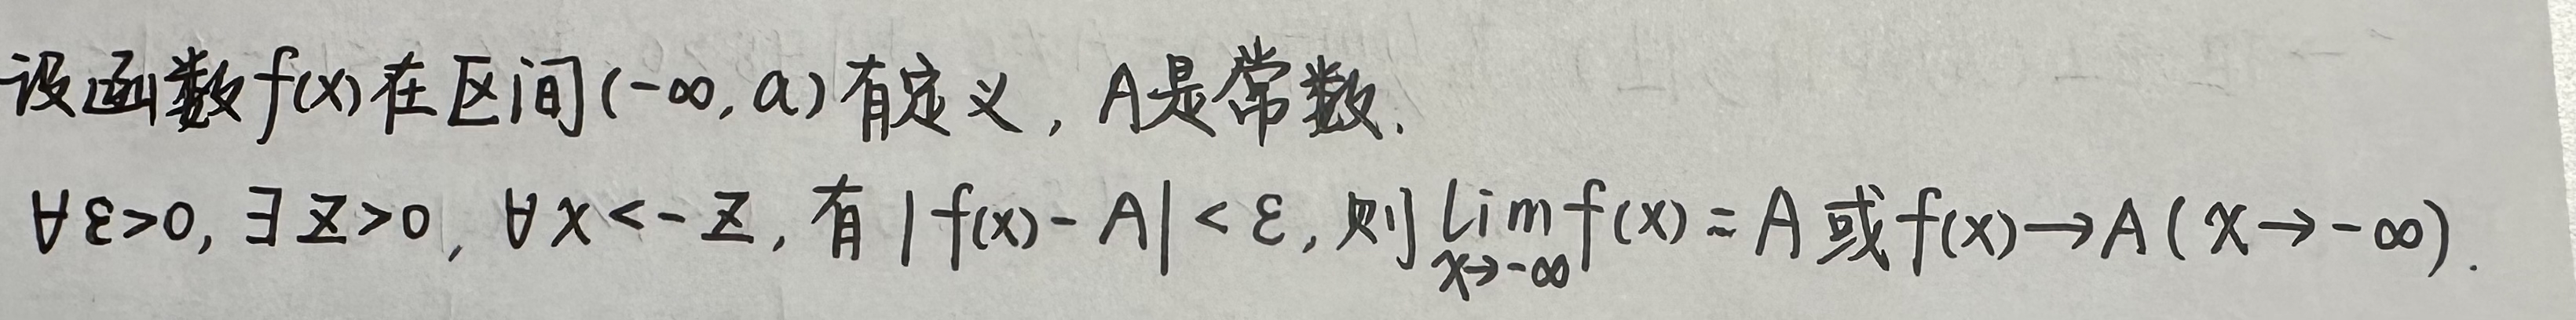 设函数f(x)在区间(-∞,a)有定义,A是常数.
∀ε>0,∃Z>0,∀x<-Z,有|f(x)-A|<ε,则lim f(x)=A或f(x)→A(x→-∞).
x→-∞